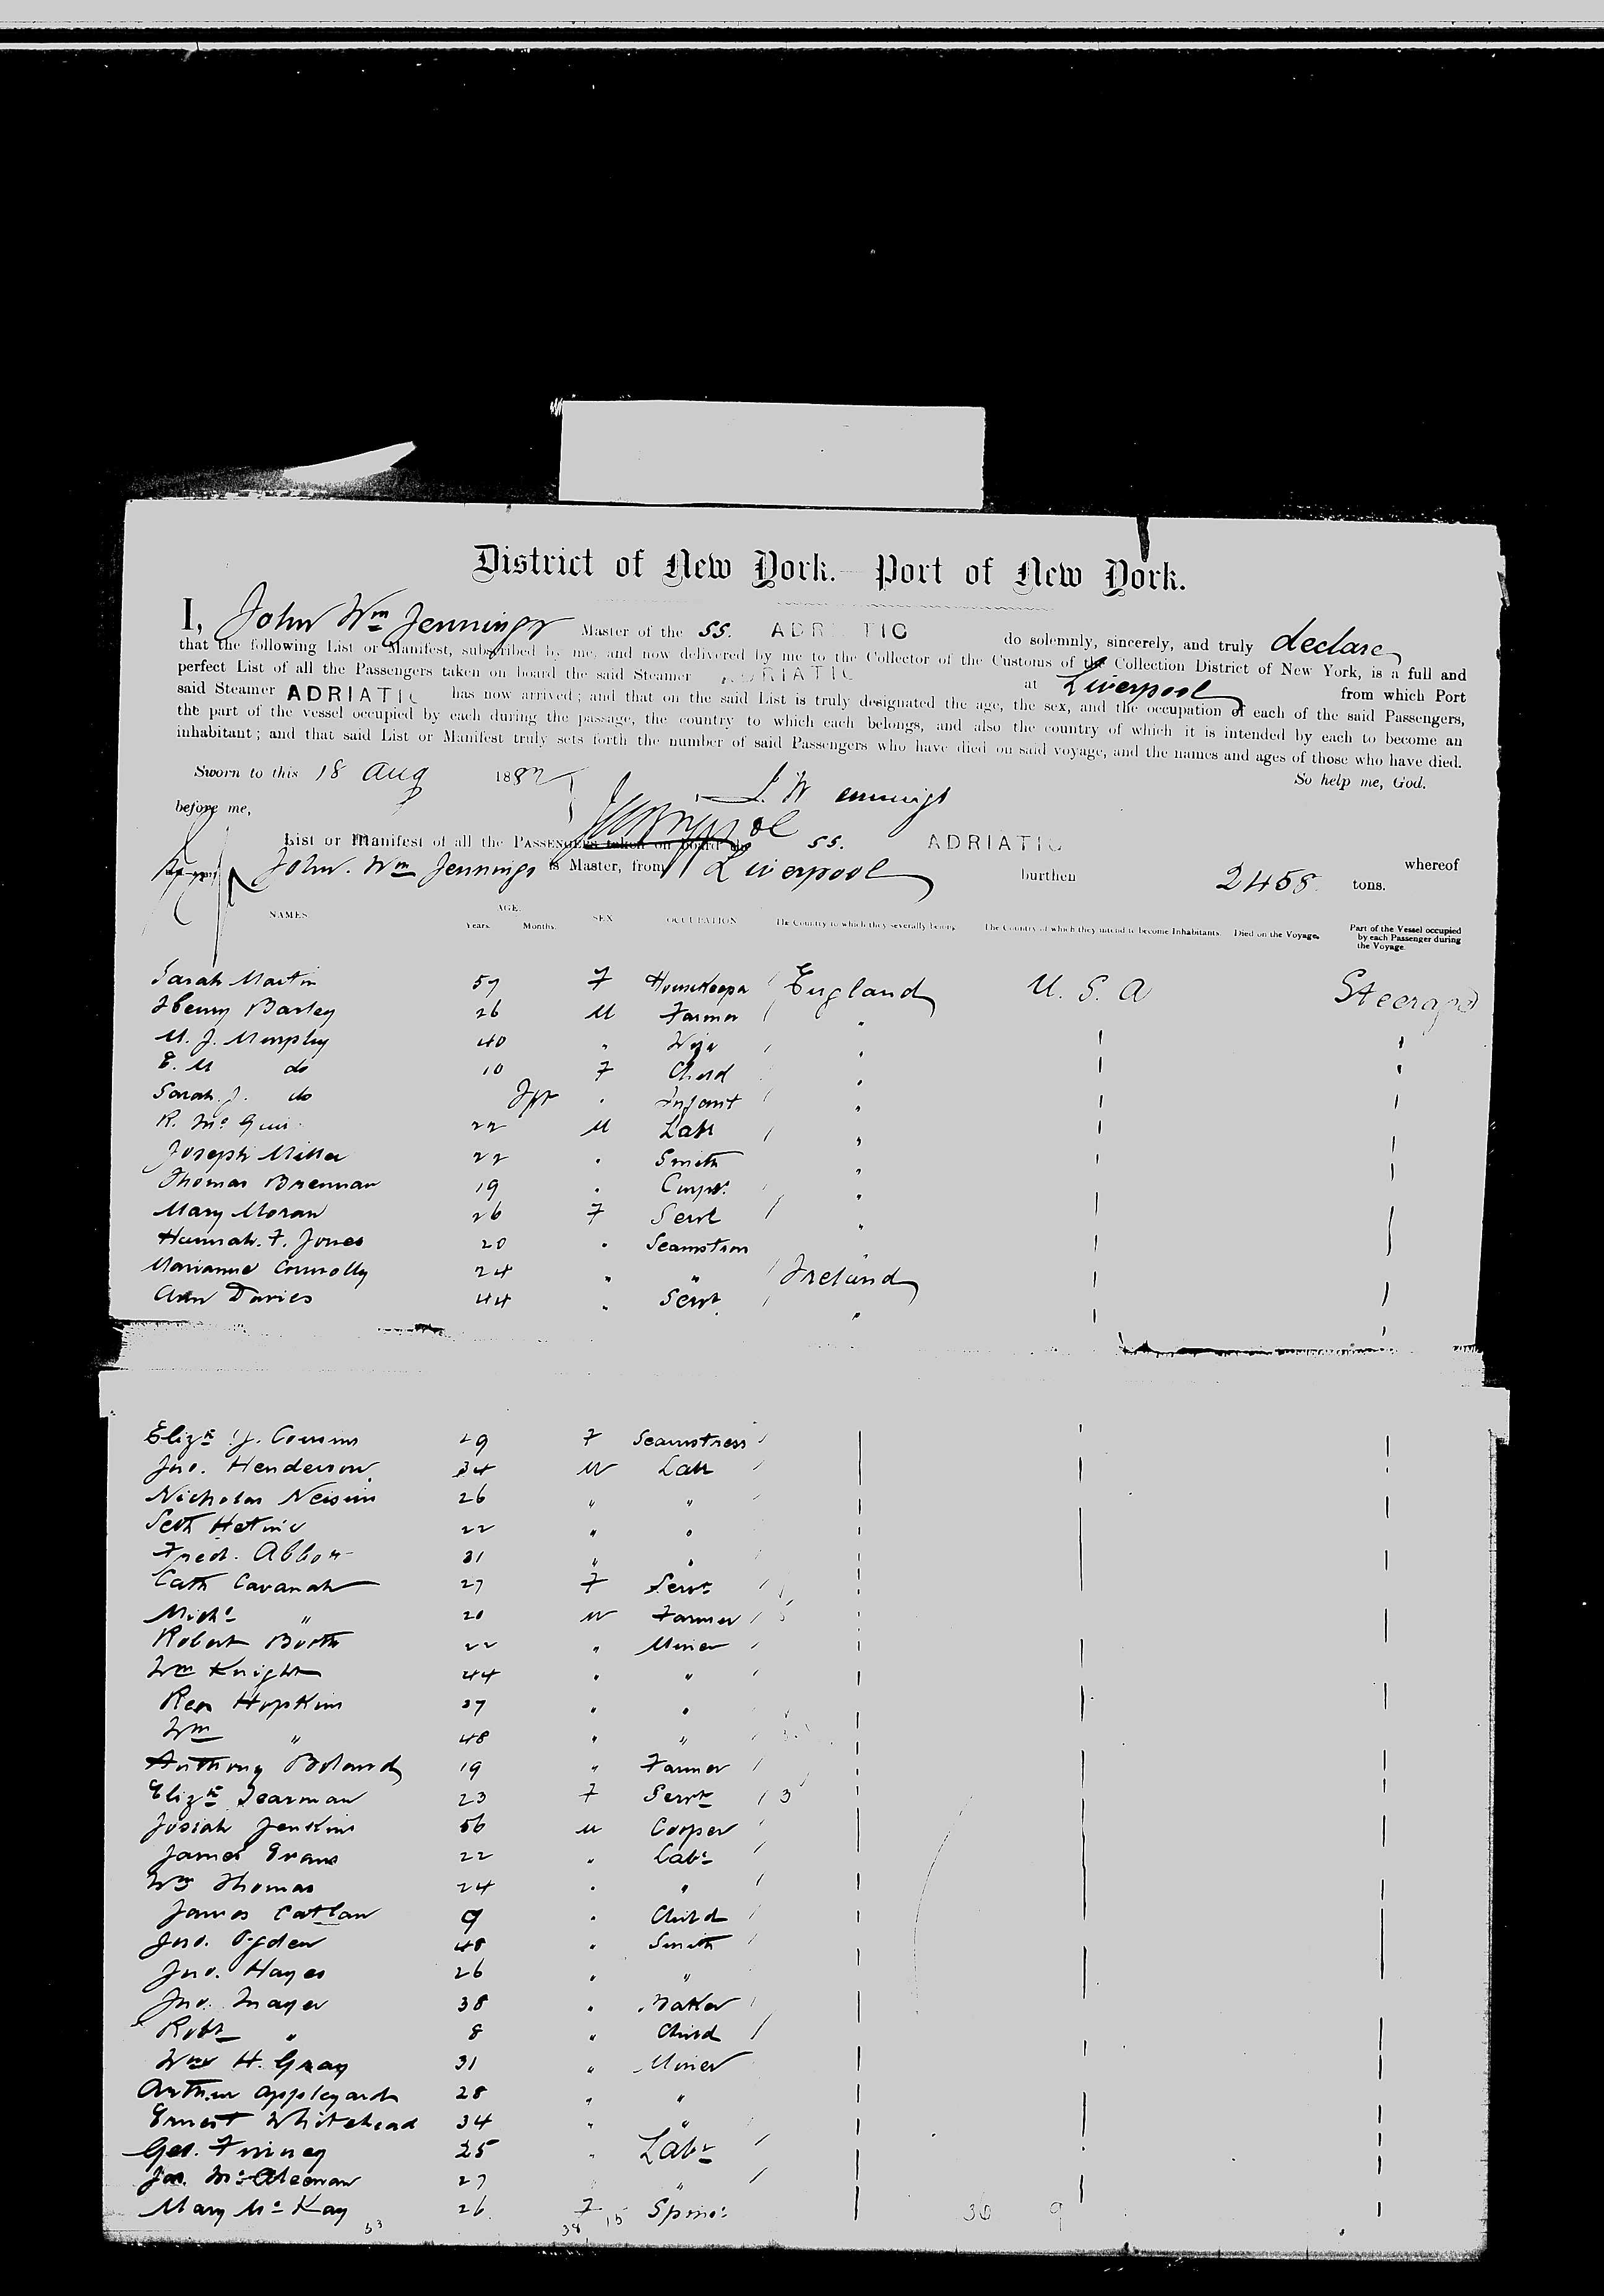 District of New York.— Port of New York.
I, John Wm Jennings Master of the SS. ADRIATIC do solemnly, sincerely, and truly declare
that the following List or Manifest, subscribed by me, and now delivered by me to the Collector of the Customs of the Collection District of New York, is a full and
perfect List of all the Passengers taken on board the said Steamer ADRIATIC at Liverpool from which Port
said Steamer ADRIATIC has now arrived; and that on the said List is truly designated the age, the sex, and the occupation of each of the said Passengers,
the part of the vessel occupied by each during the passage, the country to which each belongs, and also the country of which it is intended by each to become an
inhabitant; and that said List or Manifest truly sets forth the number of said Passengers who have died on said voyage, and the names and ages of those who have died.
Sworn to this 18 Aug 1882 So help me, God.
before me,
List or Manifest of all the PASSENGERS taken on board the SS. ADRIATIC whereof
John. Wm Jennings is Master, from Liverpool burthen 2458 tons.
NAMES. AGE. Years. Months. SEX. OCCUPATION. The Country to which they severally belong. The Country of which they intend to become Inhabitants. Died on the Voyage. Part of the Vessel occupied by each Passenger during the Voyage.
Sarah Martin 57 F Housekeeper England U. S. A Steerage
Henry Barley 26 M Farmer "
M. J. Murphy 40 " Wife "
E. M do 10 F Child "
Sarah J. do " Infant "
R. Mc 22 M Labr "
Joseph Miller 22 " Smith "
Thomas Brennan 19 " "
Mary Moran 26 F Servt "
Hannah. F. Jones 20 " Seamstress "
Marianne Connolly 24 " " Ireland
Ann Davies 44 " Servt "
Elizh J. Cousins 29 F Seamstress
Jno. Henderson 34 M Labr
Nicholas 26 " "
Seth 22 " "
Fred. Abbott 31 " "
Cath Cavanah 27 F Servt
Michl " 20 M Farmer
Robert Booth 22 " Miner
Wm Knight 44 " "
Hopkins 37 " "
Wm " 48 " "
Anthony Boland 19 " Farmer
Elizh Dearman 23 F Servt 3
Josiah Jenkins 56 M Cooper
James Evans 22 " Labr
Wm Thomas 24 " "
James Catlan 9 " Child
Jno. Ogden 48 " Smith
Jno. Hayes 26 " "
Jno. Mayer 38 " Baker
Robt " 8 " Child
Wm H. Gray 31 " Miner
Arthur Appleyard 28 " "
Ernest Whitehead 34 " "
Geo. Finney 25 " Labr
Mc 27 "
Mary Mc Kay 26 F Spins: 36 9
53 38 15